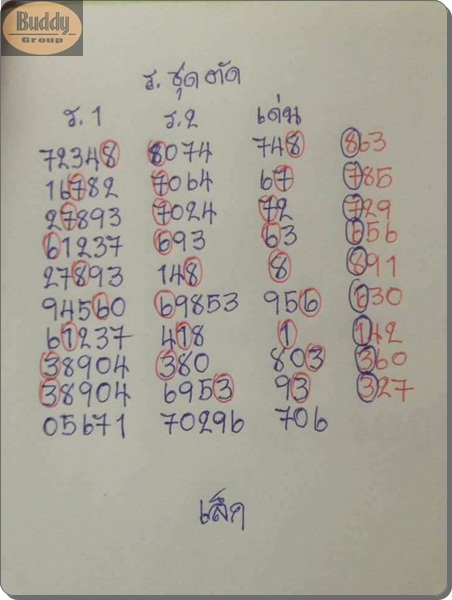 Buddy
Group
ร. ชุด ตัด
ร. 1 ร. 2 เด่น
72348 8074 748 863
16782 7064 67 785
27893 7024 72 729
61237 693 63 656
27893 148 8 891
94560 69853 956 630
61237 418 1 142
38904 380 803 360
38904 6953 93 327
05671 70296 706